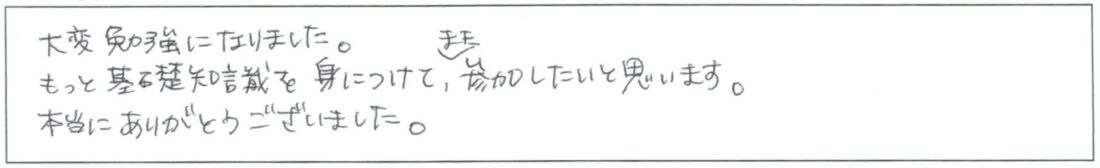 大変勉強になりました。
もっと基礎知識を身につけて、また参加したいと思います。
本当にありがとうございました。